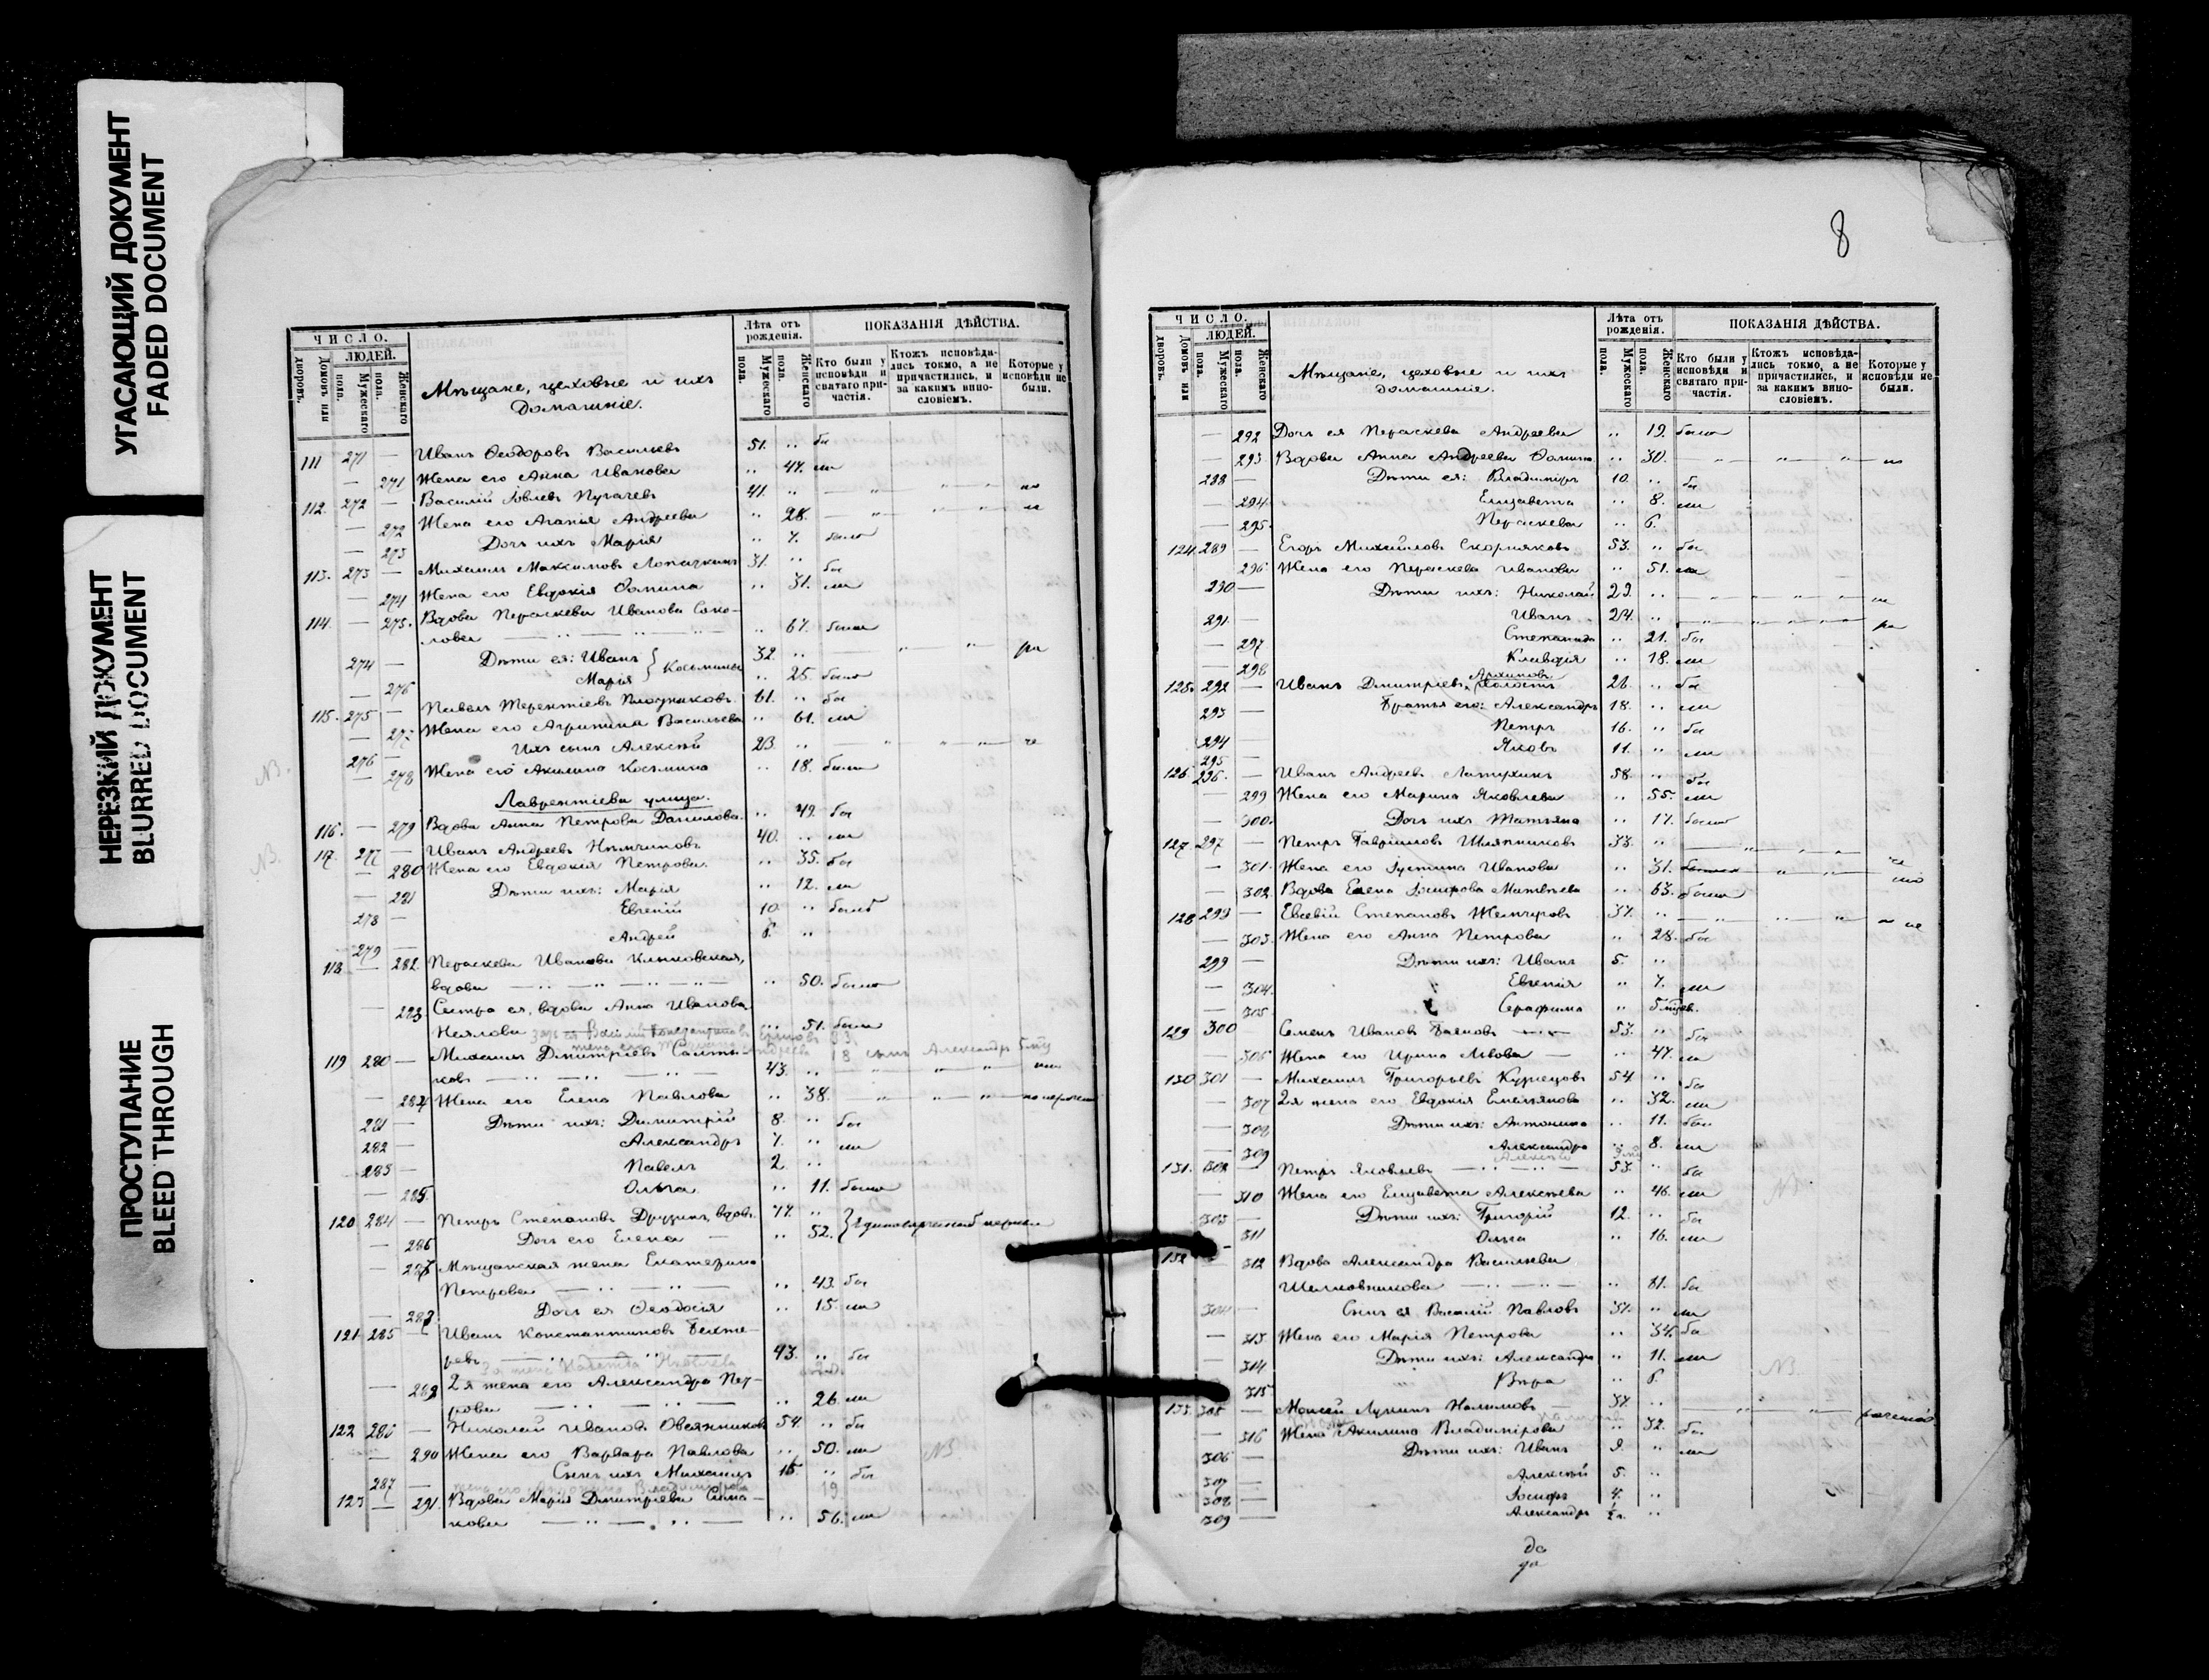 УГАСАЮЩИЙ ДОКУМЕНТ
FADED DOCUMENT
НЕРЕЗКИЙ ДОКУМЕНТ
BLURRED DOCUMENT
ПРОСТУПАНИЕ
BLEED THROUGH
ЧИСЛО.
ЛЮДЕЙ.
Домовъ или дворовъ.
Мужескаго пола.
Женскаго пола.
Мѣщане, цеховые и ихъ
домашніе.
Лѣта отъ рожденія.
Мужескаго пола.
Женскаго пола.
ПОКАЗАНІЯ ДѢЙСТВА.
Кто были у исповѣди и святаго причастія.
Ктожъ исповѣдались токмо, а не причастились, и за какимъ винословіемъ.
Которые у исповѣди не были.
111 271 — Иванъ Ѳеодоровъ Васильевъ 51. " бы
— 271 Жена его Анна Иванова " 47. ли
112. 272 — Василій Іовлевъ Пугачевъ 41. "
— 272 Жена его Агапія Андреева " 28.
— 273 Дочь ихъ Марія " 7. была
113. 273 — Михаилъ Максимовъ Лопаткинъ 31. " бы
— 274 Жена его Евдокія Ѳомина " 31. ли
114. — 275. Вдова Параскева Иванова Соко-
лова " 67. была
274 — Дѣти ея: Иванъ } Косьмины 32. "
— 276 Марія " 25. была
115. 275 — Павелъ Терентіевъ Плотниковъ 61. " бы
— 277 Жена его Агрипина Васильева " 61. ли
276 — Ихъ сынъ Алексѣй 23. "
NB.
— 278 Жена его Акилина Косьмина " 18. была
Лаврентіева улица.
116. — 279 Вдова Анна Петрова Данилова. " 49. бы
117. 277 — Иванъ Андреевъ Нѣмчиновъ 40. " ли
NB.
— 280 Жена его Евдокія Петрова. " 35. бы
— 281 Дѣти ихъ: Марія " 12. ли
278 — Евгеній 10. " былъ
279 — Андрей 6. "
118 — 282. Параскева Иванова Клыковская,
вдова " 50. была
— 283 Сестра ея, вдова Анна Иванова
Неялова " 51. была
119 280 — Михаилъ Димитріевъ Салты-
ковъ 43. "
— 284 Жена его Елена Павлова " 38.
281 — Дѣти ихъ: Димитрій 8. " бы
282 — Александръ 7. " ли
283 — Павелъ 2 "
— 285. Ольга " 11. была
120 284 — Петръ Степановъ Дружинъ, вдовъ. 77. "
— 286 Дочь его Елена " 52.
— 287 Мѣщанская жена Екатерина
Петрова " 43. бы
— 288. Дочь ея Ѳеодосія " 15. ли
121 285 — Иванъ Константиновъ Бехте-
ревъ 43. " бы
— 289 2-я жена его Александра Пет-
рова " 26. ли
122 286 — Николай Ивановъ Овсянниковъ 54 " бы
— 290 Жена его Варвара Павлова " 50. ли NB
287 — Сынъ ихъ Михаилъ 18. " бы
123 — 291. Вдова Марія Димитріева Сима-
кова " 56. ли
8
ЧИСЛО.
ЛЮДЕЙ.
Домовъ или дворовъ.
Мужескаго пола.
Женскаго пола.
Мѣщане, цеховые и ихъ
домашніе.
Лѣта отъ рожденія.
Мужескаго пола.
Женскаго пола.
ПОКАЗАНІЯ ДѢЙСТВА.
Кто были у исповѣди и святаго причастія.
Ктожъ исповѣдались токмо, а не причастились, и за какимъ винословіемъ.
Которые у исповѣди не были.
— 292 Дочь ея Параскева Андреева " 19. была
— 293 Вдова Анна Андреева Ѳомина " 30.
288 — Дѣти ея: Владиміръ 10. " бы
— 294. Елизавета " 8. ли
— 295. Параскева " 6.
124. 289 — Егоръ Михайловъ Скорняковъ 53. " бы
— 296 Жена его Параскева Иванова " 51. ли
290 — Дѣти ихъ: Николай 29. "
291 — Иванъ 24. "
— 297 Степанида " 21. бы
— 298 Клавдія " 18. ли
125. 292 — Иванъ Димитріевъ Архиповъ холостъ 26. " бы
293 — Братья его: Александръ 18. " ли
294 — Петръ 16. " бы
295 — Яковъ 11. " ли
126 296 — Иванъ Андреевъ Латухинъ 58. " бы
— 299 Жена его Марина Яковлева " 55. ли
— 300. Дочь ихъ Татьяна " 17. была
127. 297 — Петръ Гавриловъ Шляпниковъ 33. "
— 301. Жена его Іустина Иванова " 31.
— 302. Вдова Елена Іосифова Матвѣева " 63. была
128 298 — Евсевій Степановъ Жемчуговъ 37. "
— 303. Жена его Анна Петрова " 28. бы
299 — Дѣти ихъ: Иванъ 5. "
— 304. Евгенія " 7. ли
— 305 Серафима " 5 мѣс.
129 300 — Семенъ Ивановъ Баевовъ 53. " бы
— 306 Жена его Ирина Львова " 47. ли
130 301 — Михаилъ Григорьевъ Кузнецовъ 54. " бы
— 307 2-я жена его Евдокія Емельянова " 32. ли
— 308 Дѣти ихъ: Антонина " 11. бы
— 309 Александра " 8. ли
131. 302 — Петръ Яковлевъ 53. " бы
— 310 Жена его Елизавета Алексѣева " 46. ли NB
303 — Дѣти ихъ: Григорій 12. " бы
— 311 Ольга " 16. ли
132 — 312 Вдова Александра Васильева
Шелковникова " 81. бы
304 — Сынъ ея Василій Павловъ 37. " ли
— 313 Жена его Марія Петрова " 34. бы
— 314 Дѣти ихъ: Александра " 11. ли NB
— 315 Вѣра " 6.
133. 305 — Моисей Лукинъ Налимовъ 37. "
— 316 Жена Акилина Владимірова " 32. бы
306 — Дѣти ихъ: Иванъ 9. " ли
307 — Алексѣй 5. "
308 — Іосифъ 4. "
309 — Александръ ½ г. "